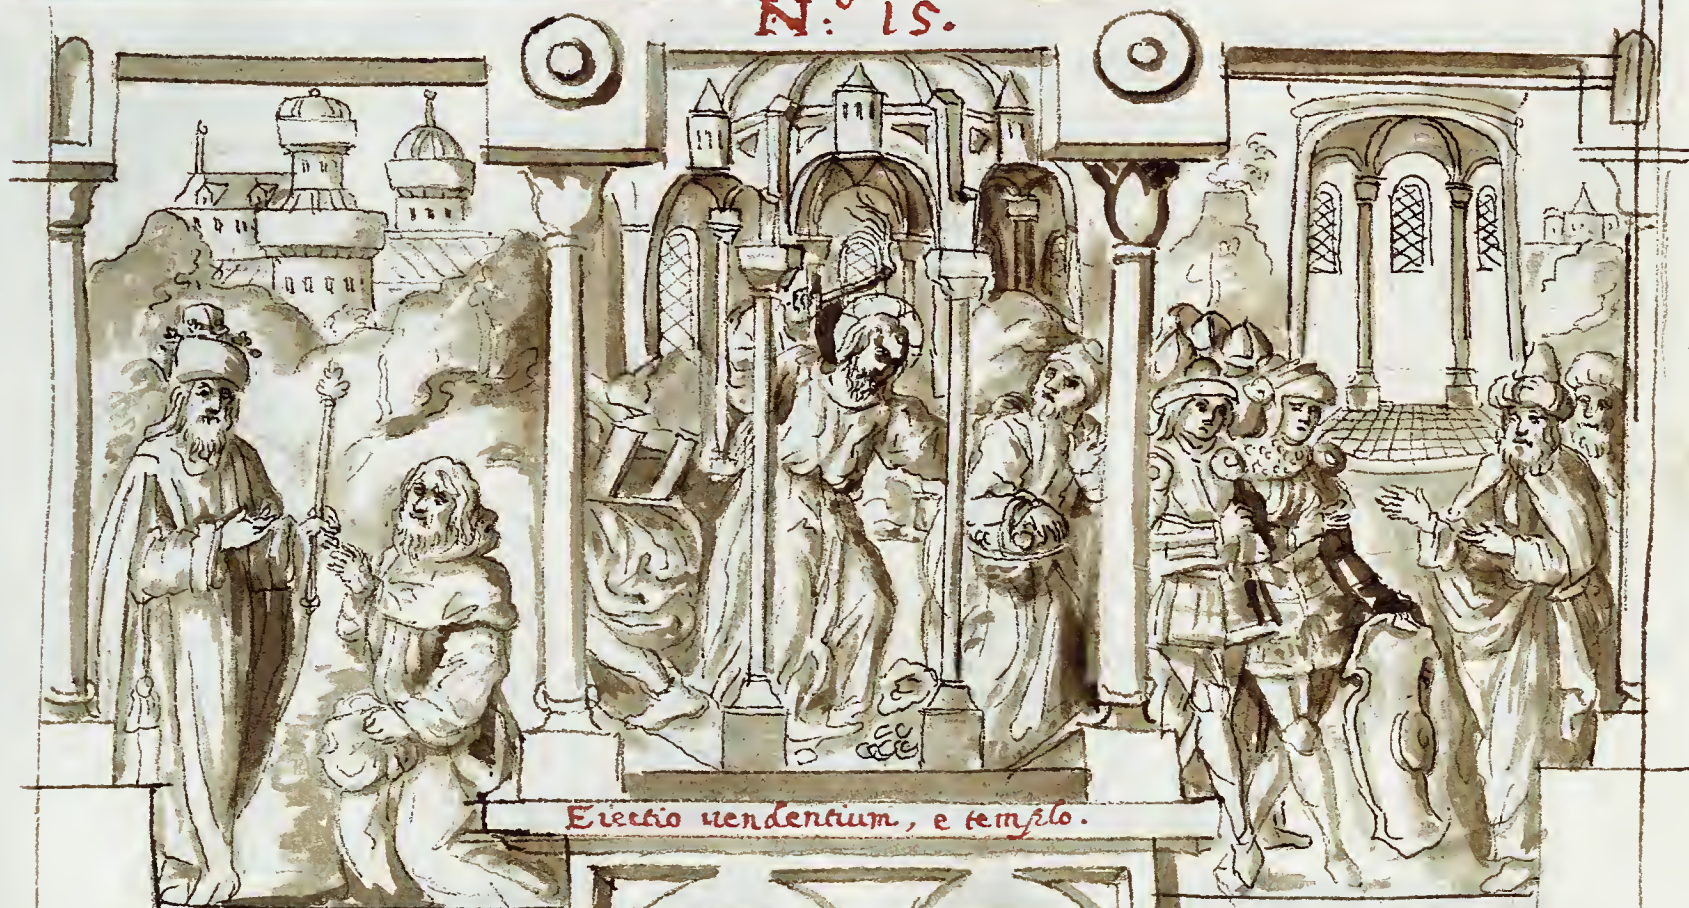 N.º 15.
Eiectio uendentium, e templo.